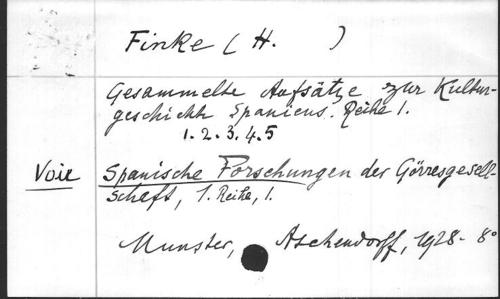 Finke (H. )
Gesammelte Aufsätze zur Kultur-
geschichte Spaniens. Reihe 1.
1.2.3.4.5
Voir Spanische Forschungen der Görresgesell-
schaft, 1. Reihe, 1.
Munster, Aschendorff, 1928- 8°